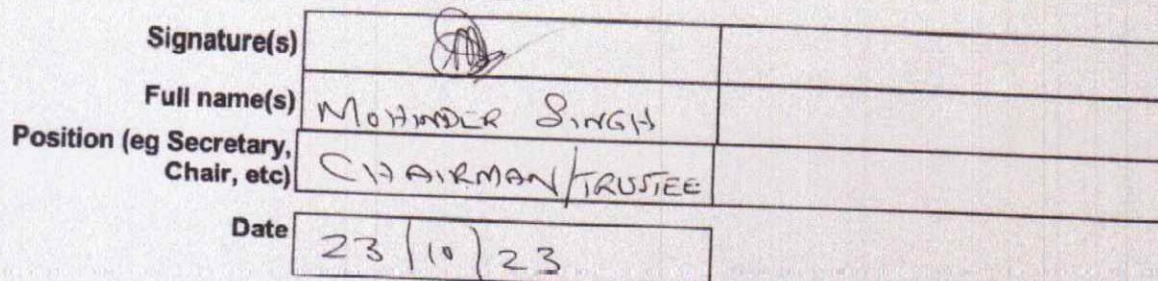 Signature(s)
Full name(s) MOHINDER SINGH
Position (eg Secretary,
Chair, etc) CHAIRMAN/TRUSTEE
Date 23/10/23